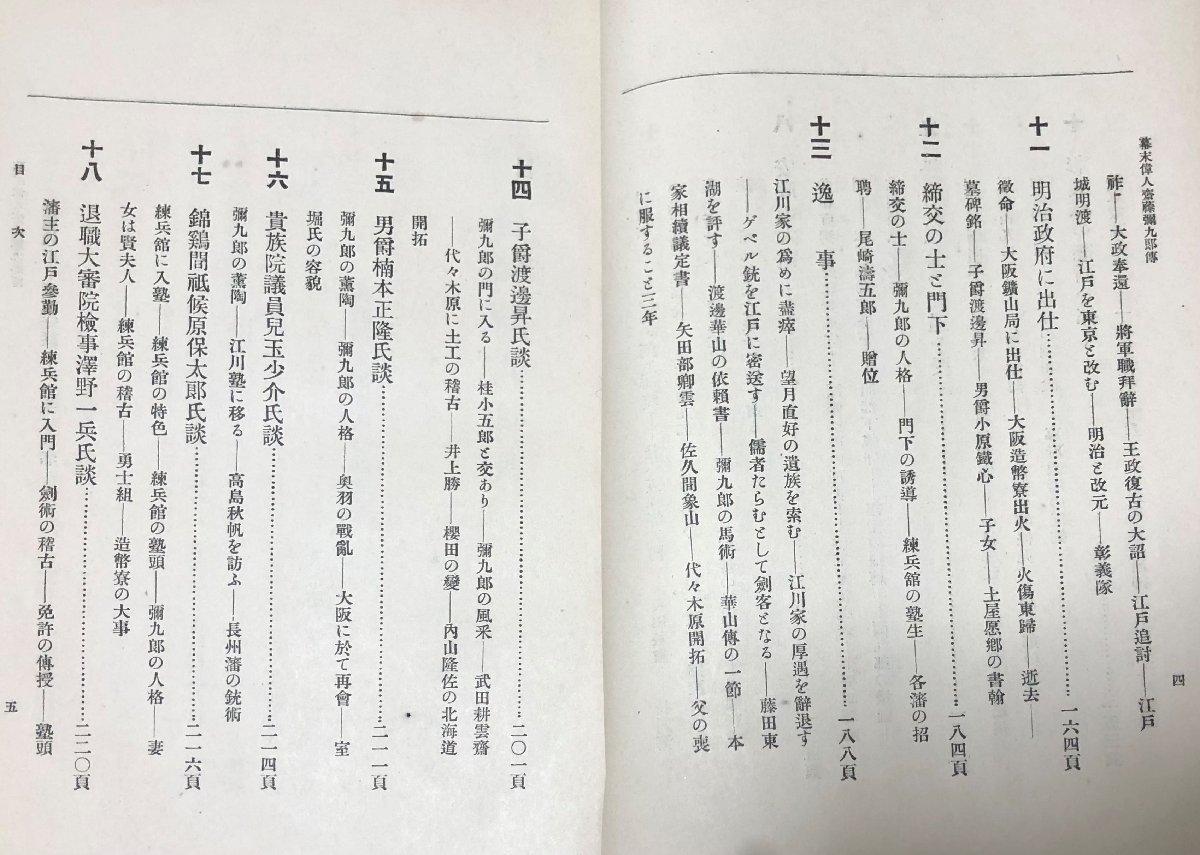 幕末偉人齋藤彌九郎傳
祚――大政奉還――將軍職拜辭――王政復古の大詔――江戸追討――江戸
城明渡――江戸を東京と改む――明治と改元――彰義隊
十一 明治政府に出仕……一六四頁
徵命――大阪鑛山局に出仕――大阪造幣寮出火――火傷東歸――逝去――
墓碑銘――子爵渡邊昇――男爵小原鐵心――子女――土屋愿鄕の書翰
十二 締交の士と門下……一八四頁
締交の士――彌九郎の人格――門下の誘導――練兵舘の塾生――各藩の招
聘――尾崎濤五郎――贈位
十三 逸事……一八八頁
江川家の爲めに盡瘁――望月直好の遺族を索む――江川家の厚遇を辭退す
――ゲベル銃を江戸に密送す――儒者たらむとして劍客となる――藤田東
湖を評す――渡邊華山の依賴書――彌九郎の馬術――華山傳の一節――本
家相續議定書――矢田部卿雲――佐久間象山――代々木原開拓――父の喪
に服すること三年
四
十四 子爵渡邊昇氏談……二〇一頁
彌九郎の門に入る――桂小五郎と交あり――彌九郎の風采――武田耕雲齋
――代々木原に土工の稽古――井上勝――櫻田の變――內山隆佐の北海道
開拓
十五 男爵楠本正隆氏談……二一一頁
彌九郎の薰陶――彌九郎の人格――奥羽の戰亂――大阪に於て再會――室
堀氏の容貌
十六 貴族院議員兒玉少介氏談……二一四頁
彌九郎の薰陶――江川塾に移る――高島秋帆を訪ふ――長州藩の銃術
十七 錦鷄間祗候原保太郎氏談……二一六頁
練兵館に入塾――練兵館の特色――練兵館の塾頭――彌九郎の人格――妻
女は賢夫人――練兵館の稽古――勇士組――造幣寮の大事
十八 退職大審院檢事澤野一兵氏談……二二〇頁
藩主の江戸參勤――練兵館に入門――劍術の稽古――免許の傳授――塾頭
目次
五